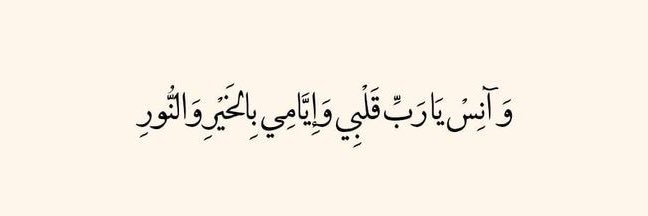 وَ آنِسْ يَا رَبِّ قَلْبِي وَإِيَّامِي بِالخَيْرِ وَالنُّورِ